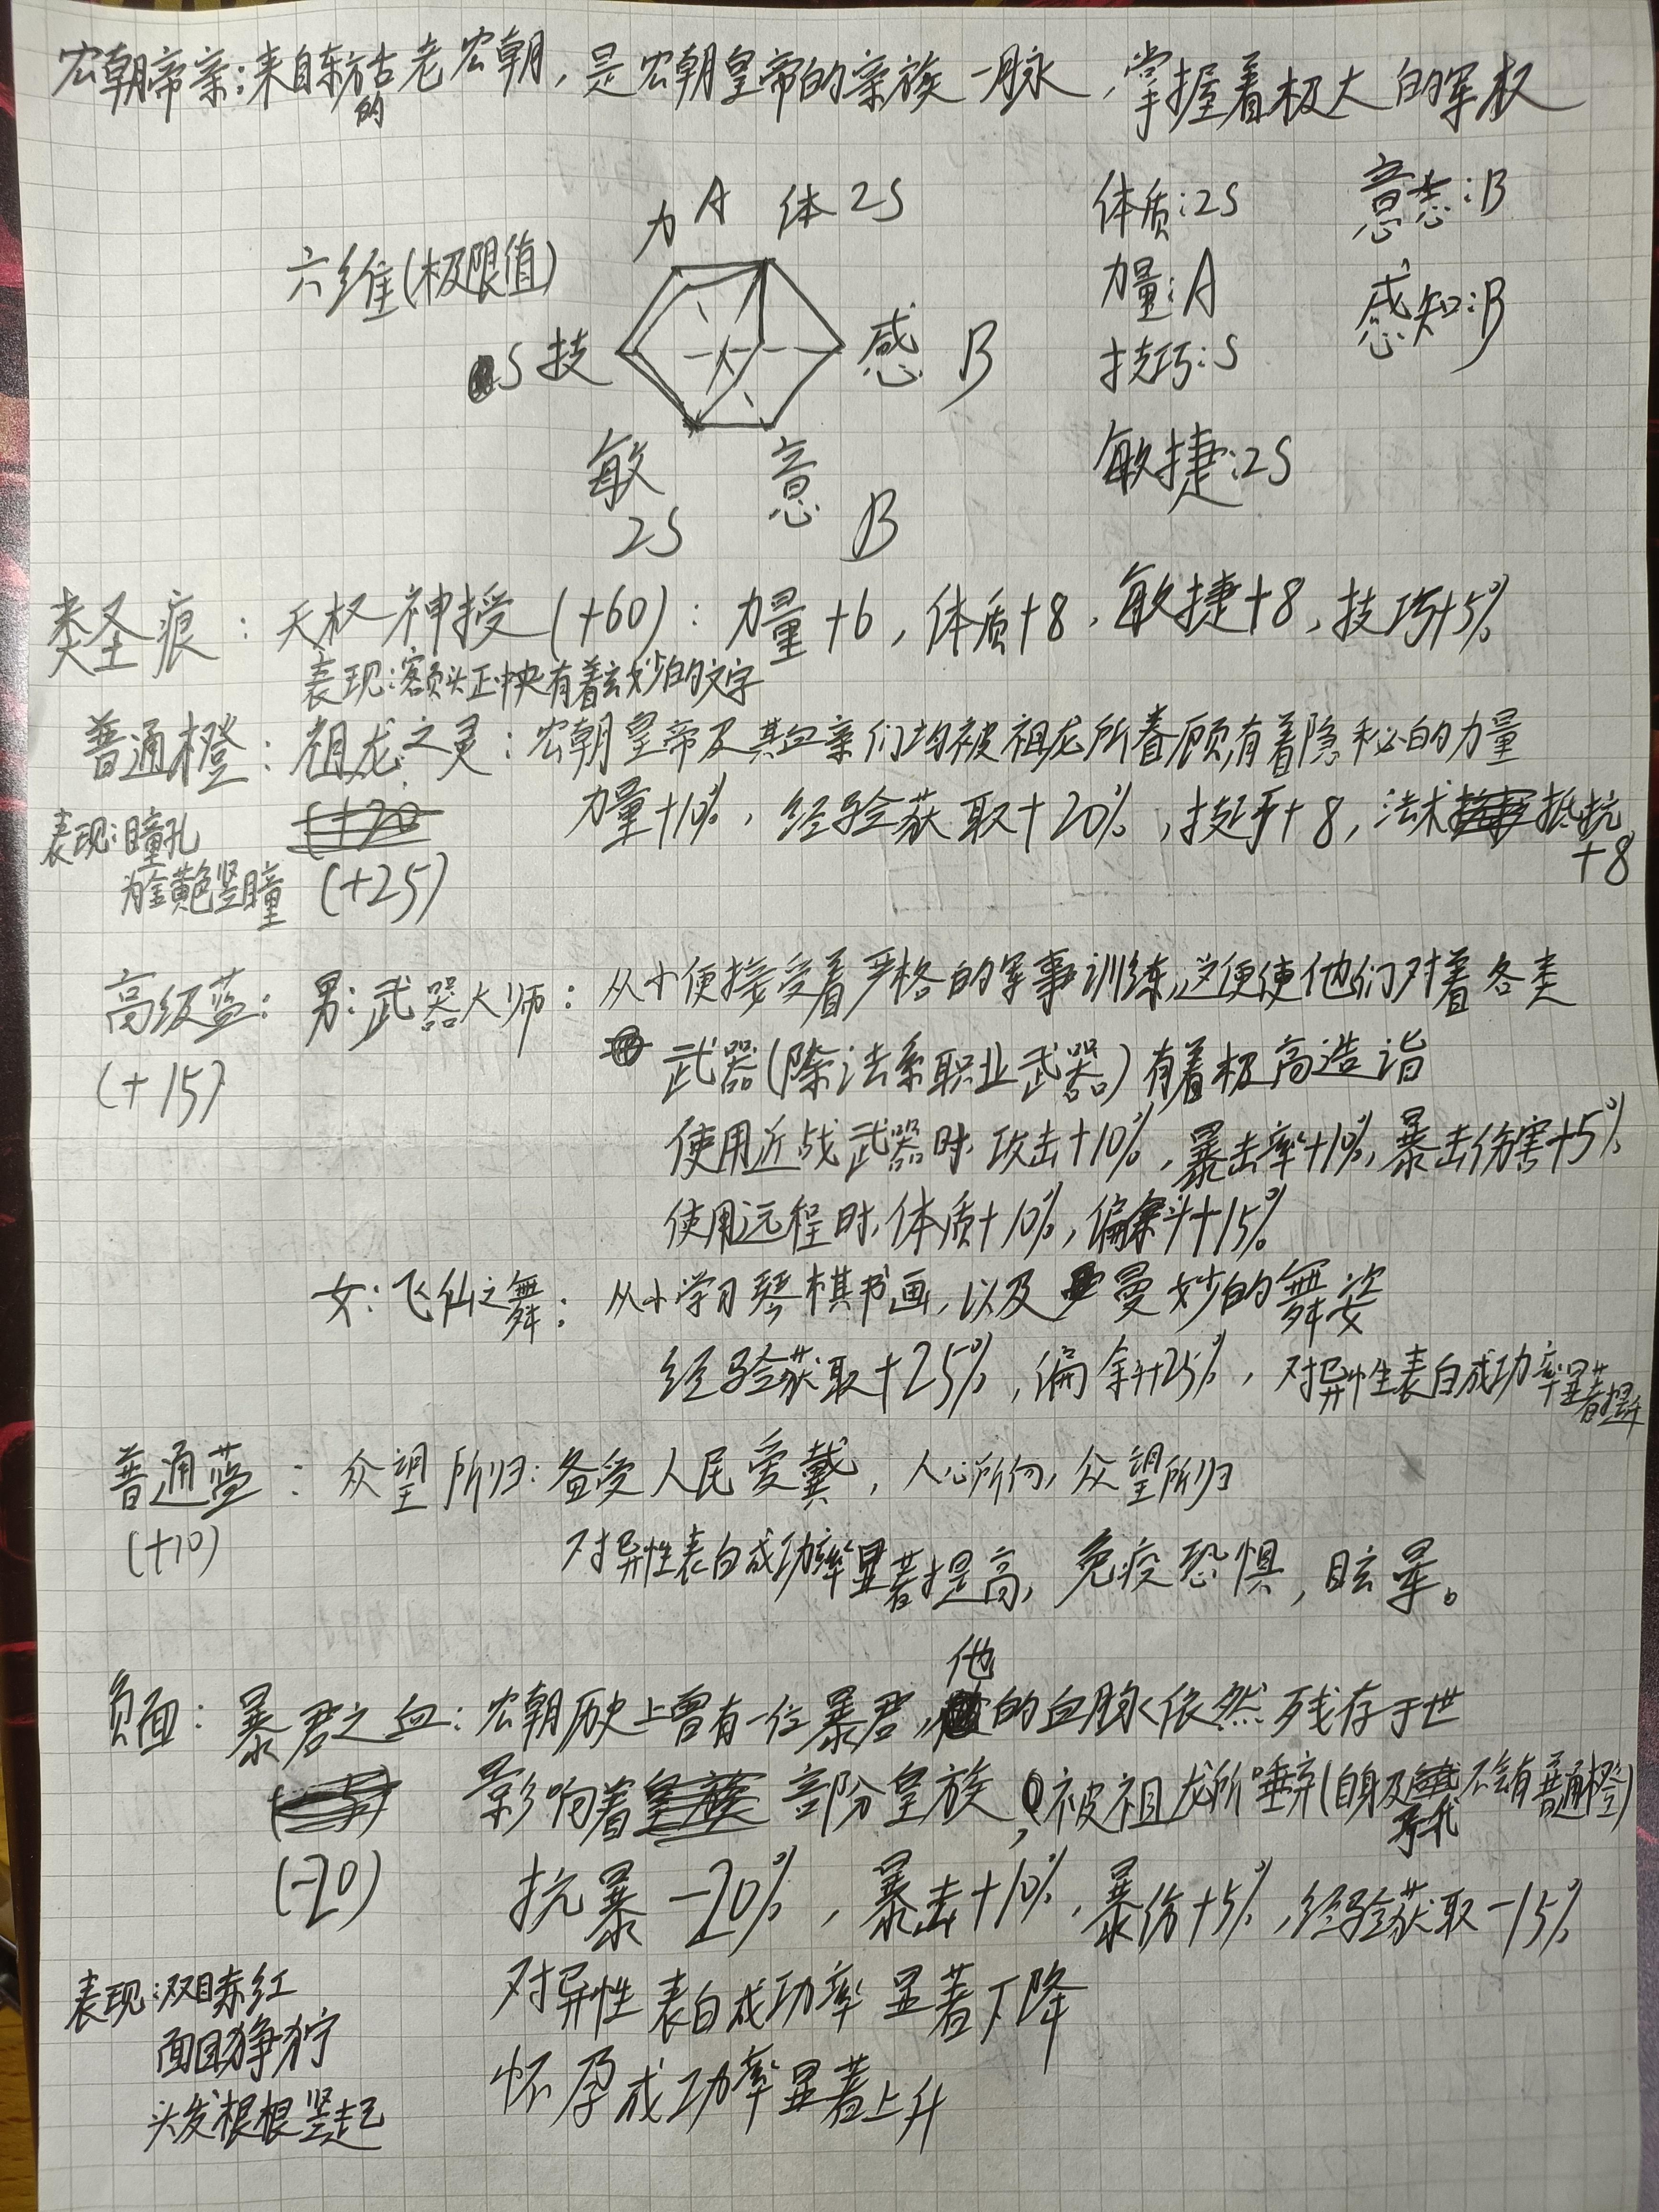 宏朝帝亲：来自东方古老宏朝，是宏朝皇帝的亲族一脉，掌握着极大的军权
的
力 A 体 2S
体质：2S 意志：B
六维（极限值）
力量：A 感知：B
S 技 感 B
技巧：S
敏 意
敏捷：2S
2S B
类圣痕：天权神授（+60）：力量+6，体质+8，敏捷+8，技巧+5%
表现：额头正中央有着玄妙的文字
普通橙：祖龙之灵：宏朝皇帝及其血亲们均被祖龙所眷顾，有着隐秘的力量
(+20
力量+10%，经验获取+20%，技巧+8，法术抵抗
+8
表现：瞳孔
为金黄色竖瞳
(+25)
高级蓝：男：武器大师：从小便接受着严格的军事训练，这便使他们对着各类
(+15)
武器（除法系职业武器）有着极高造诣
使用近战武器时，攻击+10%，暴击率+10%，暴击伤害+5%
使用远程时，体质+10%，偏斜+15%
女：飞仙之舞：从小学习琴棋书画，以及曼妙的舞姿
经验获取+25%，偏斜+25%，对异性表白成功率显著提升
普通蓝：众望所归：备受人民爱戴，人心所向，众望所归
(+10)
对异性表白成功率显著提高，免疫恐惧，眩晕。
他
负面：暴君之血：宏朝历史上曾有一位暴君，的血脉依然残存于世
影响着部分皇族，被祖龙所唾弃（自身及不会有普通橙）
(-20)
抗暴-20%，暴击+10%，暴伤+5%，经验获取-15%
对异性表白成功率显著下降
怀孕成功率显著上升
表现：双目赤红
面目狰狞
头发根根竖起